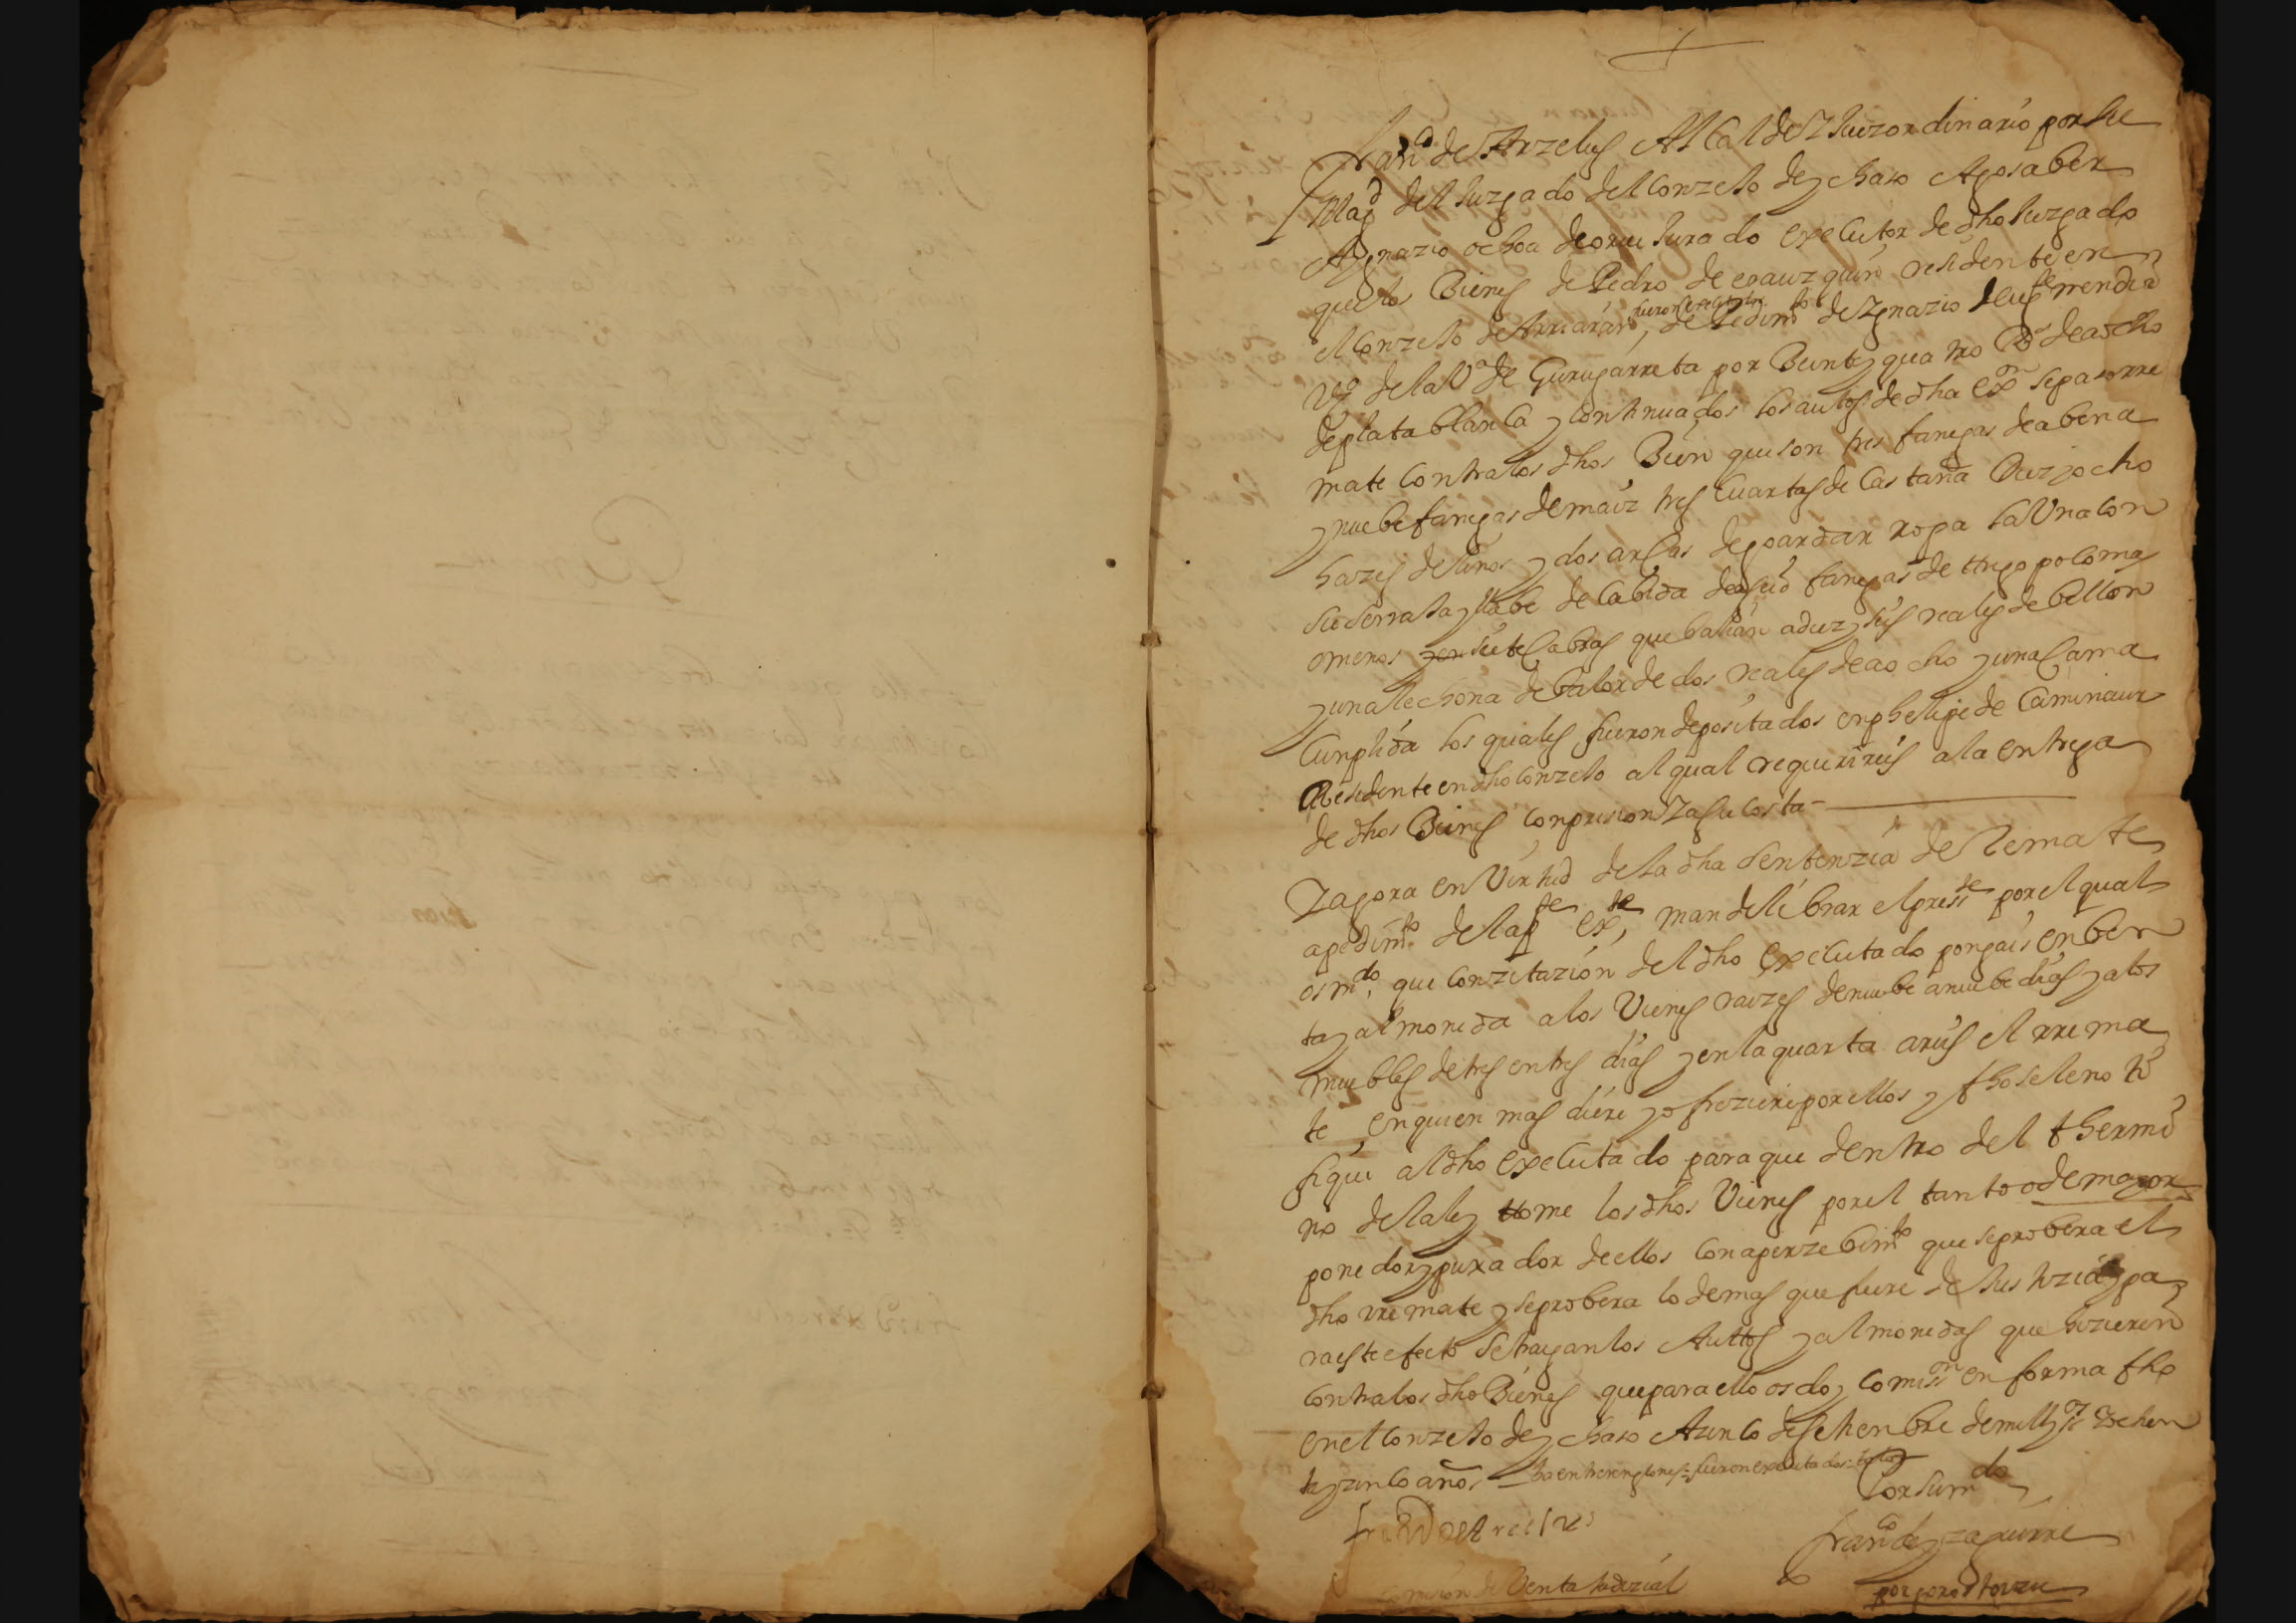 Franco de Arzelus Alcalde y Juez ordinario por su
Magd del Juzgado del Conzexo de ychaso Ago saber
A ygnazio ochoa de orue Jurado executor de dho Juzgado
que los Bienes de Pedro de erauzquin residente en
el Conzexo de Arriaran, fueron executados de Pedimto de ygnazio de mendia
Vzo de la Va de Gurugarreta por Beinte y quatro Rs de a ocho
de plata blanca y Continuados los autos de dha exon se pa sorre
mate Contra los dhos Bien que son tres fanegas de abena
y nuebe fanegas de maiz tres Cuartas de Castaña Diez y ocho
hazes de linos y dos arcas de goardar ropa la Una con
su serrala y llabe de Cabida de a seis fanegas de trigo poco mas
o menos y en siete Cabras que balian a diez y seis reales de bellon
y una lechona de balor de dos reales de a ocho y una Cama
Cunplida los quales fueron depositados en phelipe de Caminaur
Residente en dho Conzexo al qual requirireis a la entrega
de dhos Bienes con prision y a su Costa -
y agora en Virtud de la dha sentenzia de Remate
a pedimto de la pte exte, mande librar el presste por el qual
os mdo, que con zitazion del dho executado pongais en ben
ta y almoneda a los Vienes raizes de nuebe a nuebe dias y a los
muebles de tres en tres dias y en la quarta areis el rrema
te en quien mas diere y ofreziere por ellos y fho se le noti
fique al dho executado para que dentro del thermi
no de la ley tome los dhos Vienes por el tanto o de mayor
ponedor y puxador de ellos con aperzebimto que se probera el
dho rremate y se probera lo demas que fuere de Justizia y pa
ra este efecto se traigan los Auttos y almonedas que hizieren
Contra los dho Bienes que para ello os doy Comisson en forma fho
en el Conzexo de ychaso A zinco de setienbre de mill y ssos y ochen
ta y zinco años, - ba entre renglones: fueron executados:
Por su mdo
franco de yzaguirre
Comision de Venta Judizial